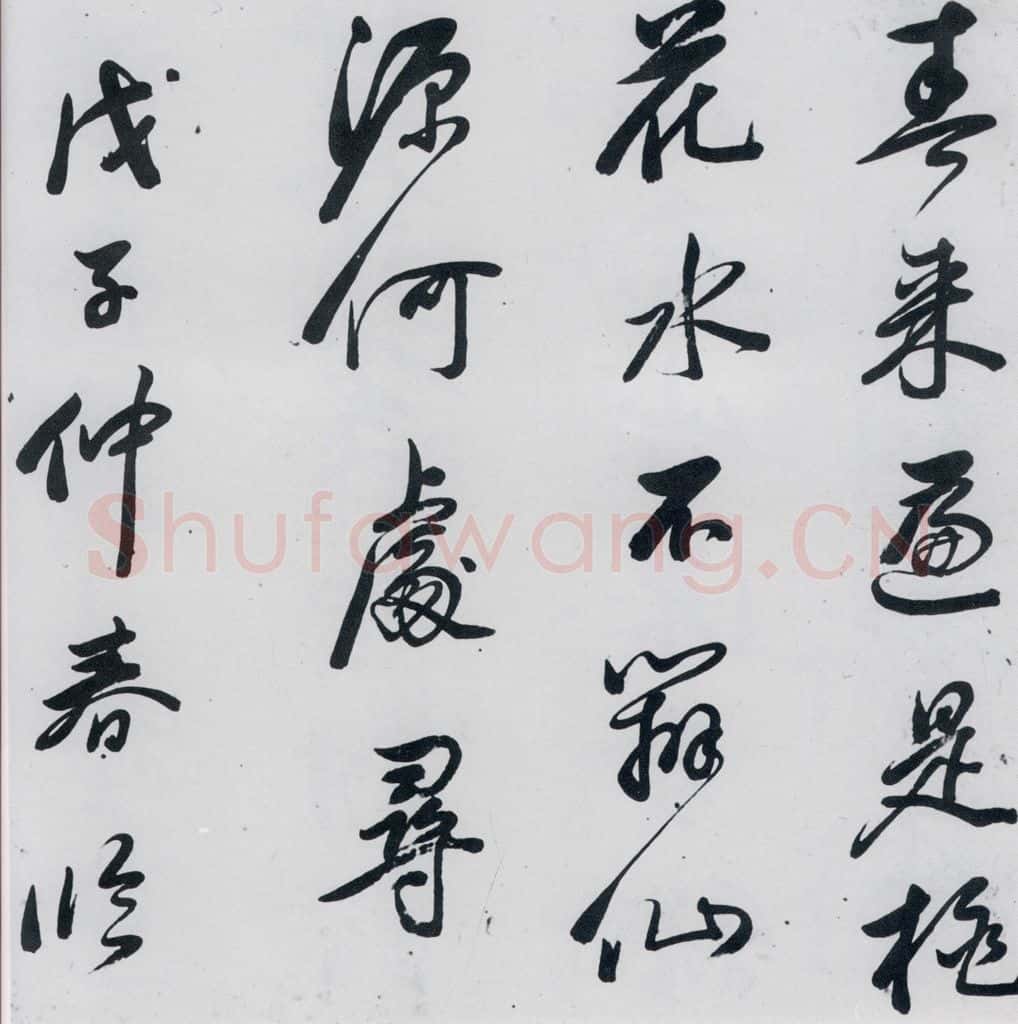 春来遍是桃
花水不辨仙
源何處尋
戊子仲春临
Shufawang.CN